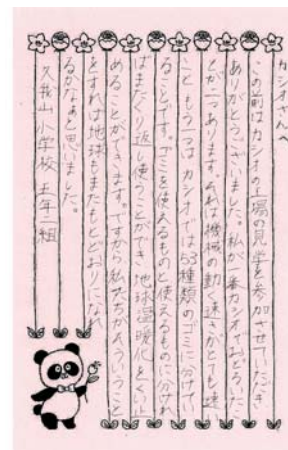 カシオさんへ
この前はカシオの工場の見学を参加させていただき
ありがとうございました。私が一番カシオでおどろいたこ
とが二つあります。それは機械の動く速さがとても速い
こと もう一つは、カシオでは53種類のゴミに分けてい
ることです。ゴミを使えるものと使えるものに分けれ
ばまたくり返し使うことができ、地球温暖化をくい止
めることができます。ですから私たちがそういうこと
をすれば地球もまたもとどおりになれ
るかなぁと思いました。
久我山小学校 五年二組